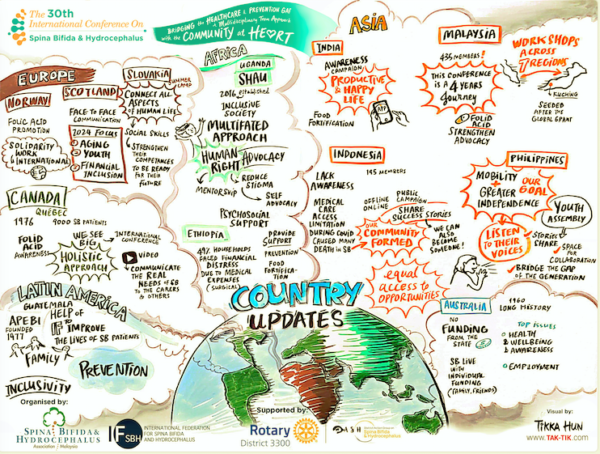 The 30th
International Conference On
Spina Bifida & Hydrocephalus
BRIDGING the HEALTHCARE & PREVENTION GAP
a Multidisciplinary Team Approach
with the COMMUNITY at HEART
EUROPE
NORWAY
FOLIC ACID
PROMOTION
SOLIDARITY
WORK
INTERNATIONAL
SCOTLAND
FACE TO FACE
COMMUNICATION
2024 FOCUS
AGING
YOUTH
FINANCIAL
INCLUSION
SLOVAKIA
SUMMER
CAMP
CONNECT ALL
ASPECTS
OF HUMAN LIFE
SOCIAL SKILLS
STRENGTHEN
THEIR
COMPETANCES
TO BE READY
FOR THEIR
FUTURE
CANADA
QUEBEC
1976
9000 SB PATIENTS
FOLID
ACID
AWARENESS
WE SEE
BIG
HOLISTIC
APPROACH
INTERNATIONAL
CONFERENCE
VIDEO
COMMUNICATE
THE REAL
NEEDS OF SB
TO THE CARERS
& OTHERS
LATIN AMERICA
GUATEMALA
APEBI
FOUNDED
1977
HELP OF
IF
IMPROVE
THE LIVES OF SB PATIENTS
FAMILY
PREVENTION
INCLUSIVITY
AFRICA
UGANDA
SHAU
2016 established
INCLUSIVE
SOCIETY
MULTIFATED
APPROACH
HUMAN
RIGHT
ADVOCACY
REDUCE
STIGMA
MENTORSHIP
SELF
ADVOCACY
PSYCHOSOCIAL
SUPPORT
ETHIOPIA
49% HOUSEHOLDS
FACED FINANCIAL
DISTRESS
DUE TO MEDICAL
EXPENSES
(SURGICAL)
PROVIDE
SUPPORT
PREVENTION
FOOD
FORTIFICA
TION
ASIA
INDIA
AWARENESS
CAMPAIGN
PRODUCTIVE
& HAPPY
LIFE
FOOD
FORTIFICATION
APP
MALAYSIA
435 MEMBERS!
THIS CONFERENCE
IS A 4 YEARS
Journey
FOLIC
ACID
STRENGTHEN
ADVOCACY
WORKSHOPS
ACROSS
7 REGIONS
KUCHING
SEEDED
AFTER THE
GLOBAL GRANT
INDONESIA
145 MEMBERS
LACK
AWARENESS
MEDICAL
CARE
ACCESS
LIMITATION
DURING COVID
CAUSED MANY
DEATH in SB
OFFLINE
ONLINE
PUBLIC
CAMPAIGN
SHARE
SUCCESS STORIES
OUR
COMMUNITY
FORMED
WE CAN
ALSO
BECOME
SOMEONE!
equal
access to
OPPORTUNITIES
PHILIPPINES
MOBILITY
+
GREATER
INDEPENDENCE
OUR
GOAL
YOUTH
ASSEMBLY
LISTEN
TO THEIR
VOICES
STORIES
SHARE
SPACE
FOR
COLLABORATION
BRIDGE THE GAP
OF THE GENERATION
AUSTRALIA
1960
LONG HISTORY
NO
FUNDING
FROM THE
STATE
SB LIVE
WITH
INDIVIDUAL
FUNDING
(FAMILY, FRIENDS)
TOP ISSUES
HEALTH
&
WELLBEING
& AWARENESS
EMPLOYMENT
COUNTRY
UPDATES
Organised by:
SPINA BIFIDA &
HYDROCEPHALUS
Association | Malaysia
IF
SBH
INTERNATIONAL FEDERATION
FOR SPINA BIFIDA
AND HYDROCEPHALUS
Supported by:
Rotary
District 3300
Spina Bifida
& Hydrocephalus
Visual by:
TIKKA HUN
www.TAK-TIK.com